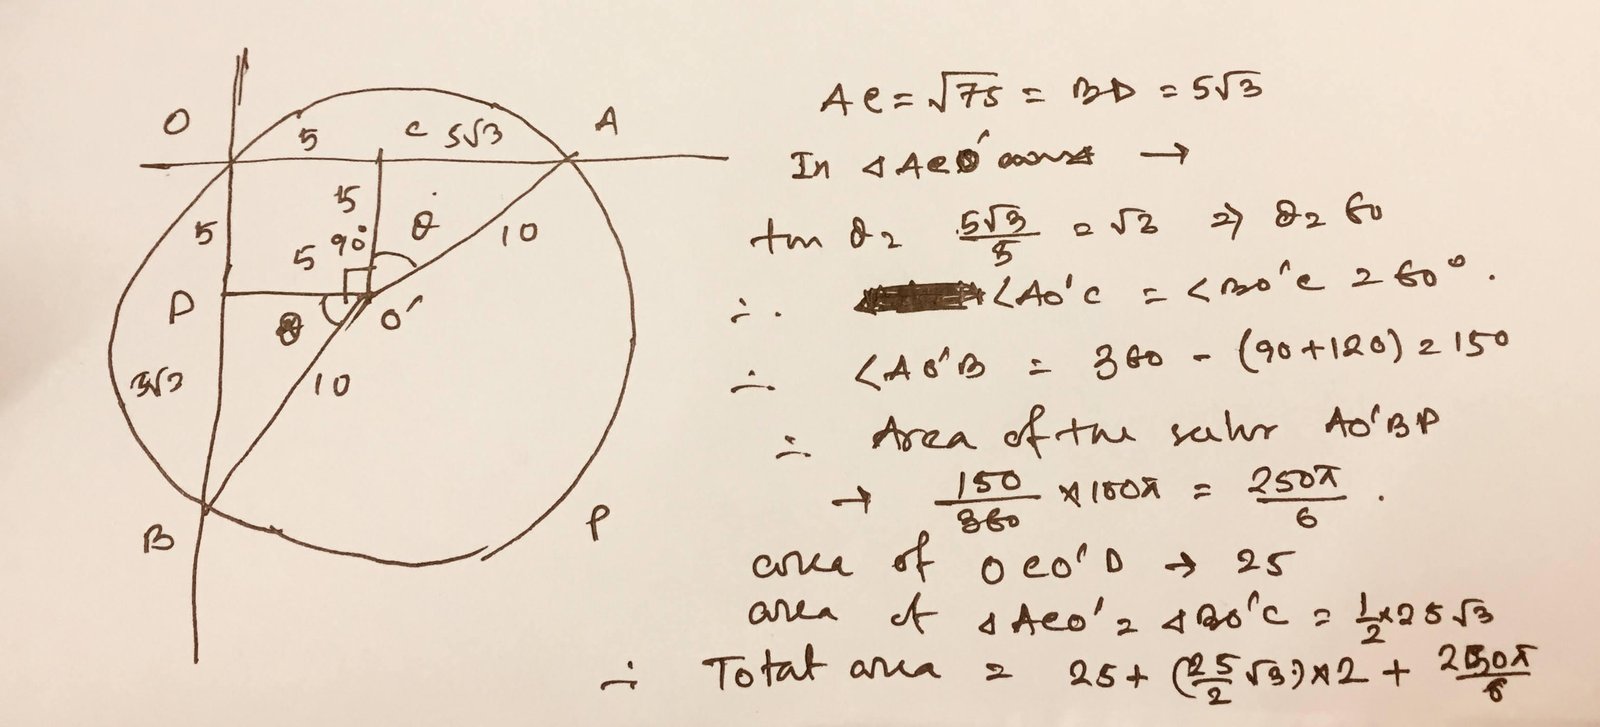 O
5
C
5√3
A
5
5
5
90°
θ
10
D
θ
O'
5√3
10
B
P
AC = √75 = BD = 5√3
In △ACO' →
tan θ = 5√3/5 = √3 ⇒ θ = 60
∴ <AO'C = <BO'C = 60°.
∴ <AO'B = 360 - (90+120) = 150
∴ Area of the sector AO'BP
→ 150/360 × 100π = 250π/6 .
area of OCO'D → 25
area of △ACO' = △BO'C = 1/2 × 25√3
∴ Total area = 25 + (25/2 √3) × 2 + 250π/6